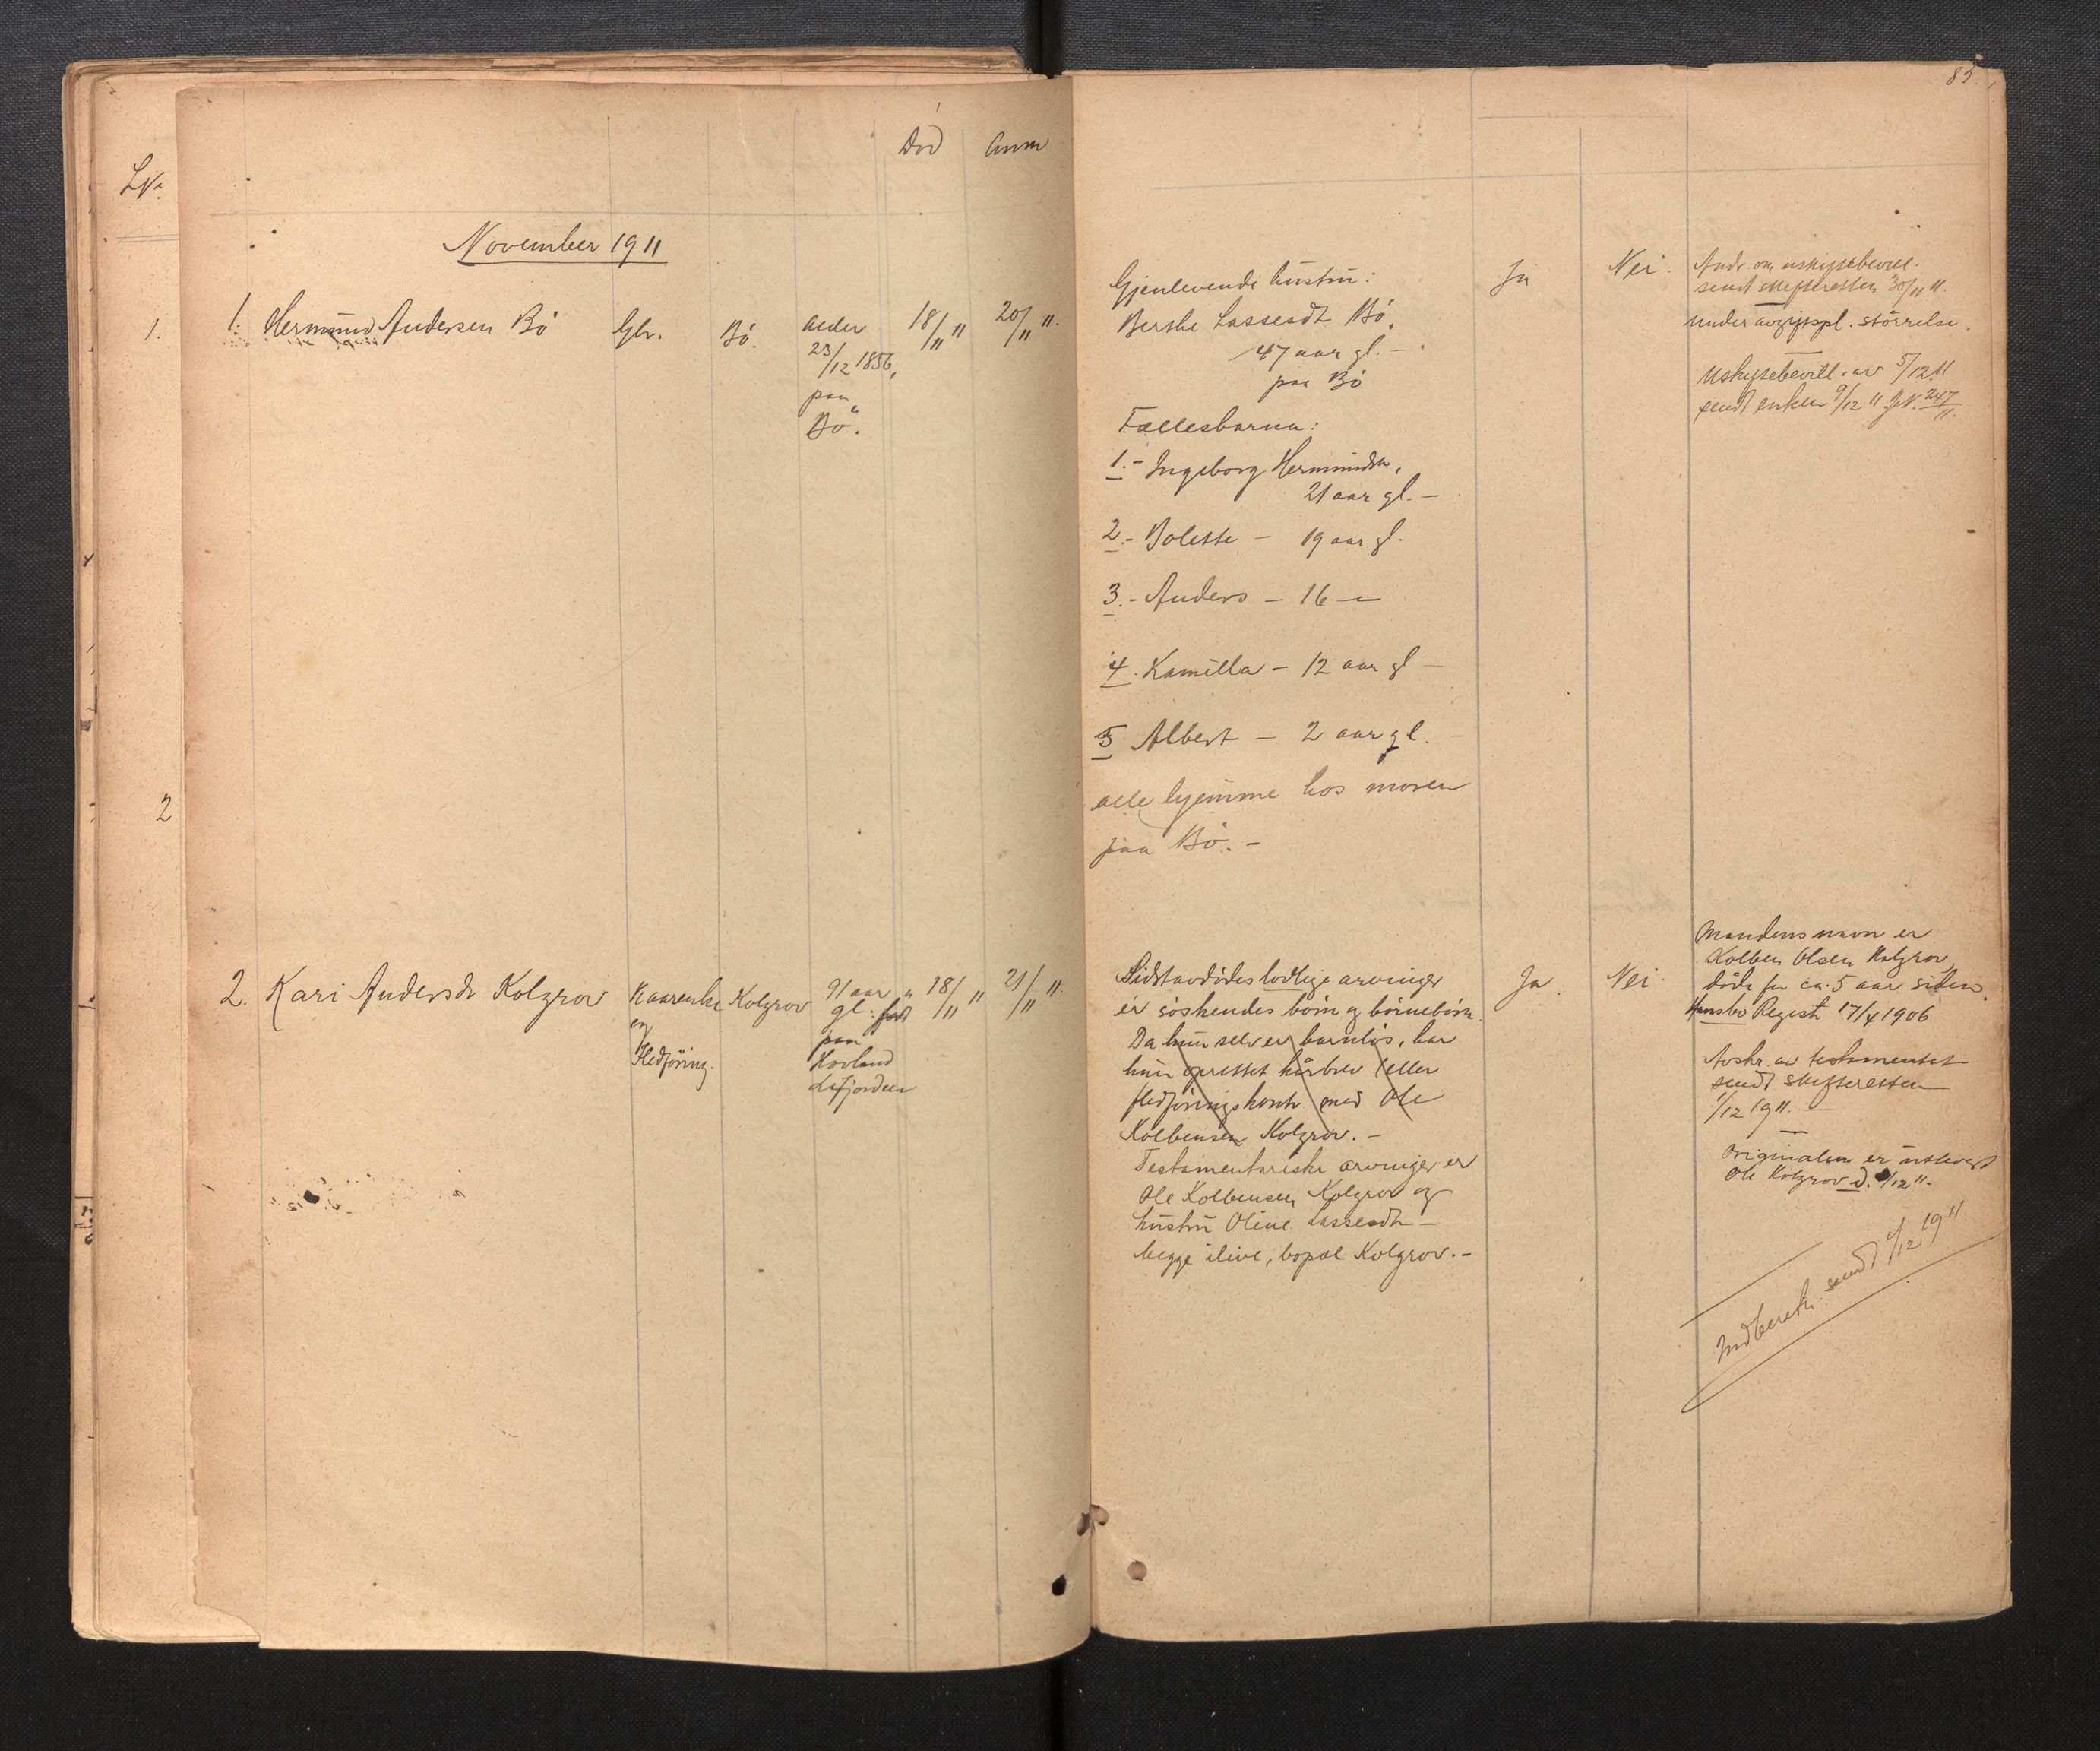 85.
Død Anm
LN.
November 1911
1. 1. Hermund Andersen Bö Gbr. Bö. alder 18/11 11 20/11 11.
23/12 1856,
paa
Bö.
Gjenlevende hustru: Ja Nei.
Berthe Lassesdt Bö,
47 aar gl. –
paa Bö
Fællesbarn:
1. – Ingeborg Hermundsdtr,
21 aar gl. –
2. – Bolette – 19 aar gl.
3. – Anders – 16 –
4. Kamilla – 12 aar gl –
5 Albert – 2 aar gl. –
alle hjemme hos moren
paa Bö. –
Andr. om uskiftebevill.
sendt skifteretten 30/11 11.
under avgiftspl. størrelse.
Uskiftebevill. av 5/12 11
sendt enken 9/12 11 JN. 247/11.
2
2. Kari Andersdr Kolgrov Kaarenke Kolgrov 91 aar 18/11 11 21/11 11.
og gl. født
Fledföring. paa
Hovland
Lifjorden
Sidstavdödes lovlige arvinger Ja. Nei
er söskendes börn og börnebörn.
Da hun selv er barnlös, har
hun oprettet kårbrev (eller
fledföringskontr. med Ole
Kolbensen Kolgrov. –
Testamentariske arvinger er
Ole Kolbensen Kolgrov og
hustru Oline Lassesdtr –
begge ilive, bopæl Kolgrov. –
Mandens navn er
Kolben Olsen Kolgrov,
döde for ca. 5 aar siden.
Regist. 17/4 1906
Avskr. av testamentet
sendt skifteretten
1/12 1911. –
Originalen er utlevert
Ole Kolgrov d. /12 11.
Indberetn. sendt 1/12 1911